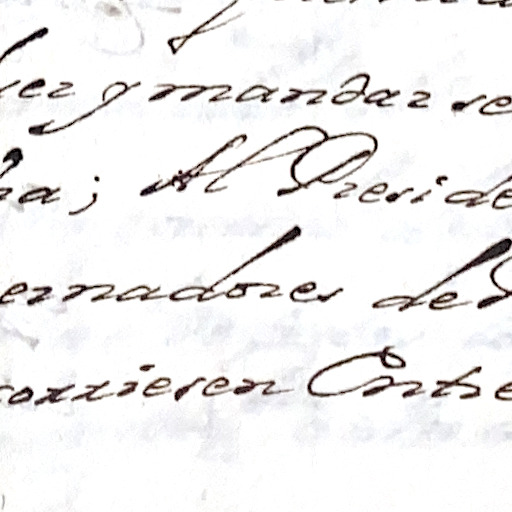 y mandar se
ha; Al Preside
ernadores de
corrieren Entre